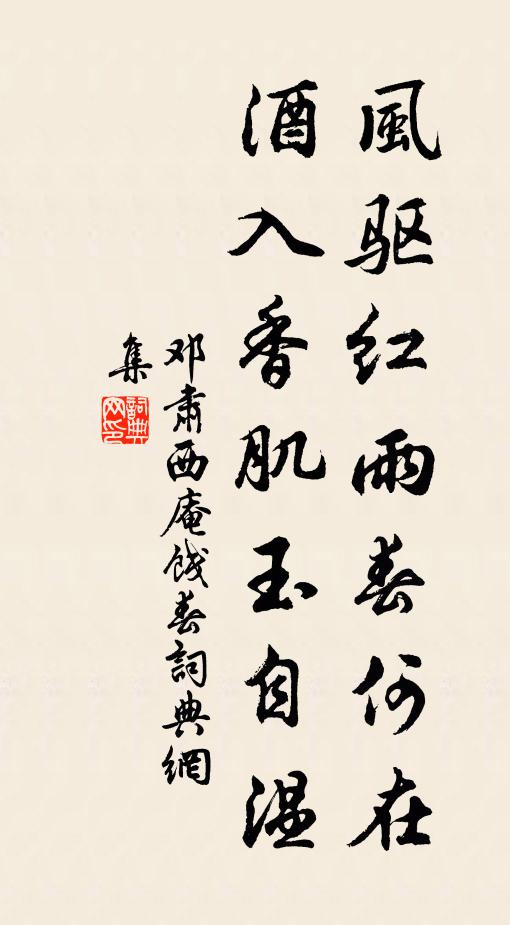 風驱红雨春何在
酒入香肌玉自温
邓肃西庵饯春詞典網
集
詞典
网印